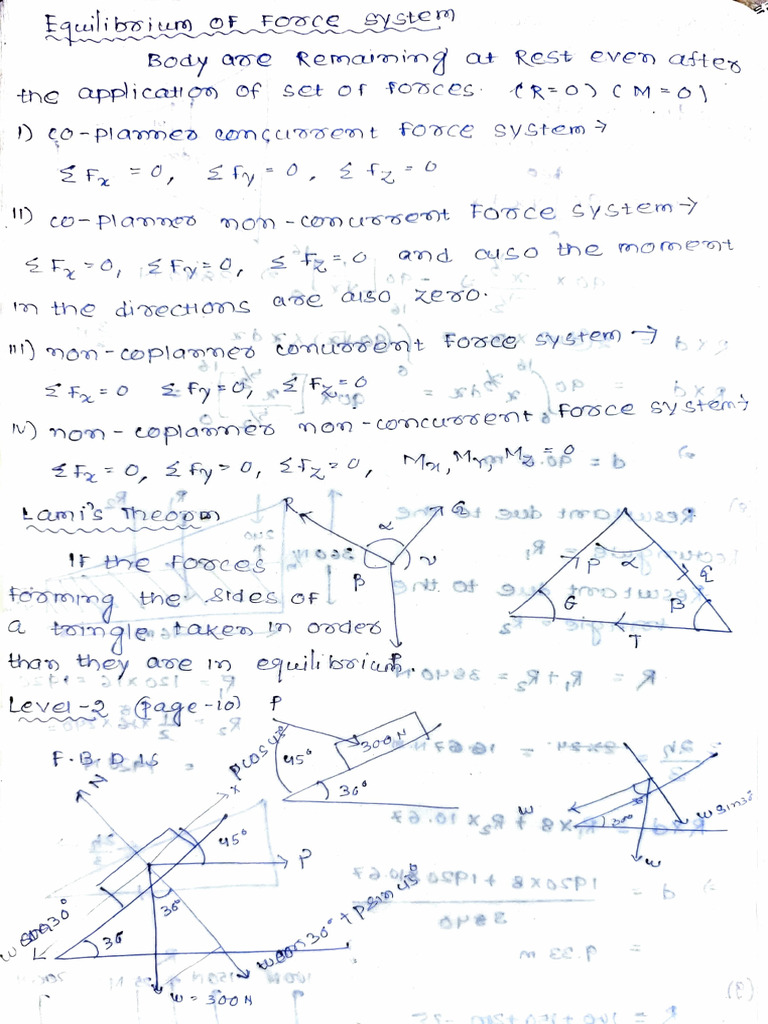 Equilibrium OF Force system
Body are Remaining at Rest even after
the application of set of forces. (R=0) (M=0)
I) co-planner concurrent force system →
Σ Fx = 0, Σ Fy = 0, Σ Fz = 0
II) co-planner non-concurrent Force system →
Σ Fx = 0, Σ Fy = 0, Σ Fz = 0 and also the moment
in the directions are also zero.
III) non-coplanner concurrent Force system →
Σ Fx = 0 Σ Fy = 0, Σ Fz = 0
IV) non-coplanner non-concurrent force system →
Σ Fx = 0, Σ Fy = 0, Σ Fz = 0, Mx, My, Mz = 0
Lami's Theorm
R
Q
α
β
P
α
Q
β
T
If the forces
forming the sides of
a tringle taken in order
than they are in equilibrium.
Level-2 (Page-10)
P
45°
300N
30°
F.B.D is
N
P cos 45°
x
45°
P
30°
30°
w sin 30°
w cos 30° + P sin 45°
w = 300N
w
30°
w
w sin 30°